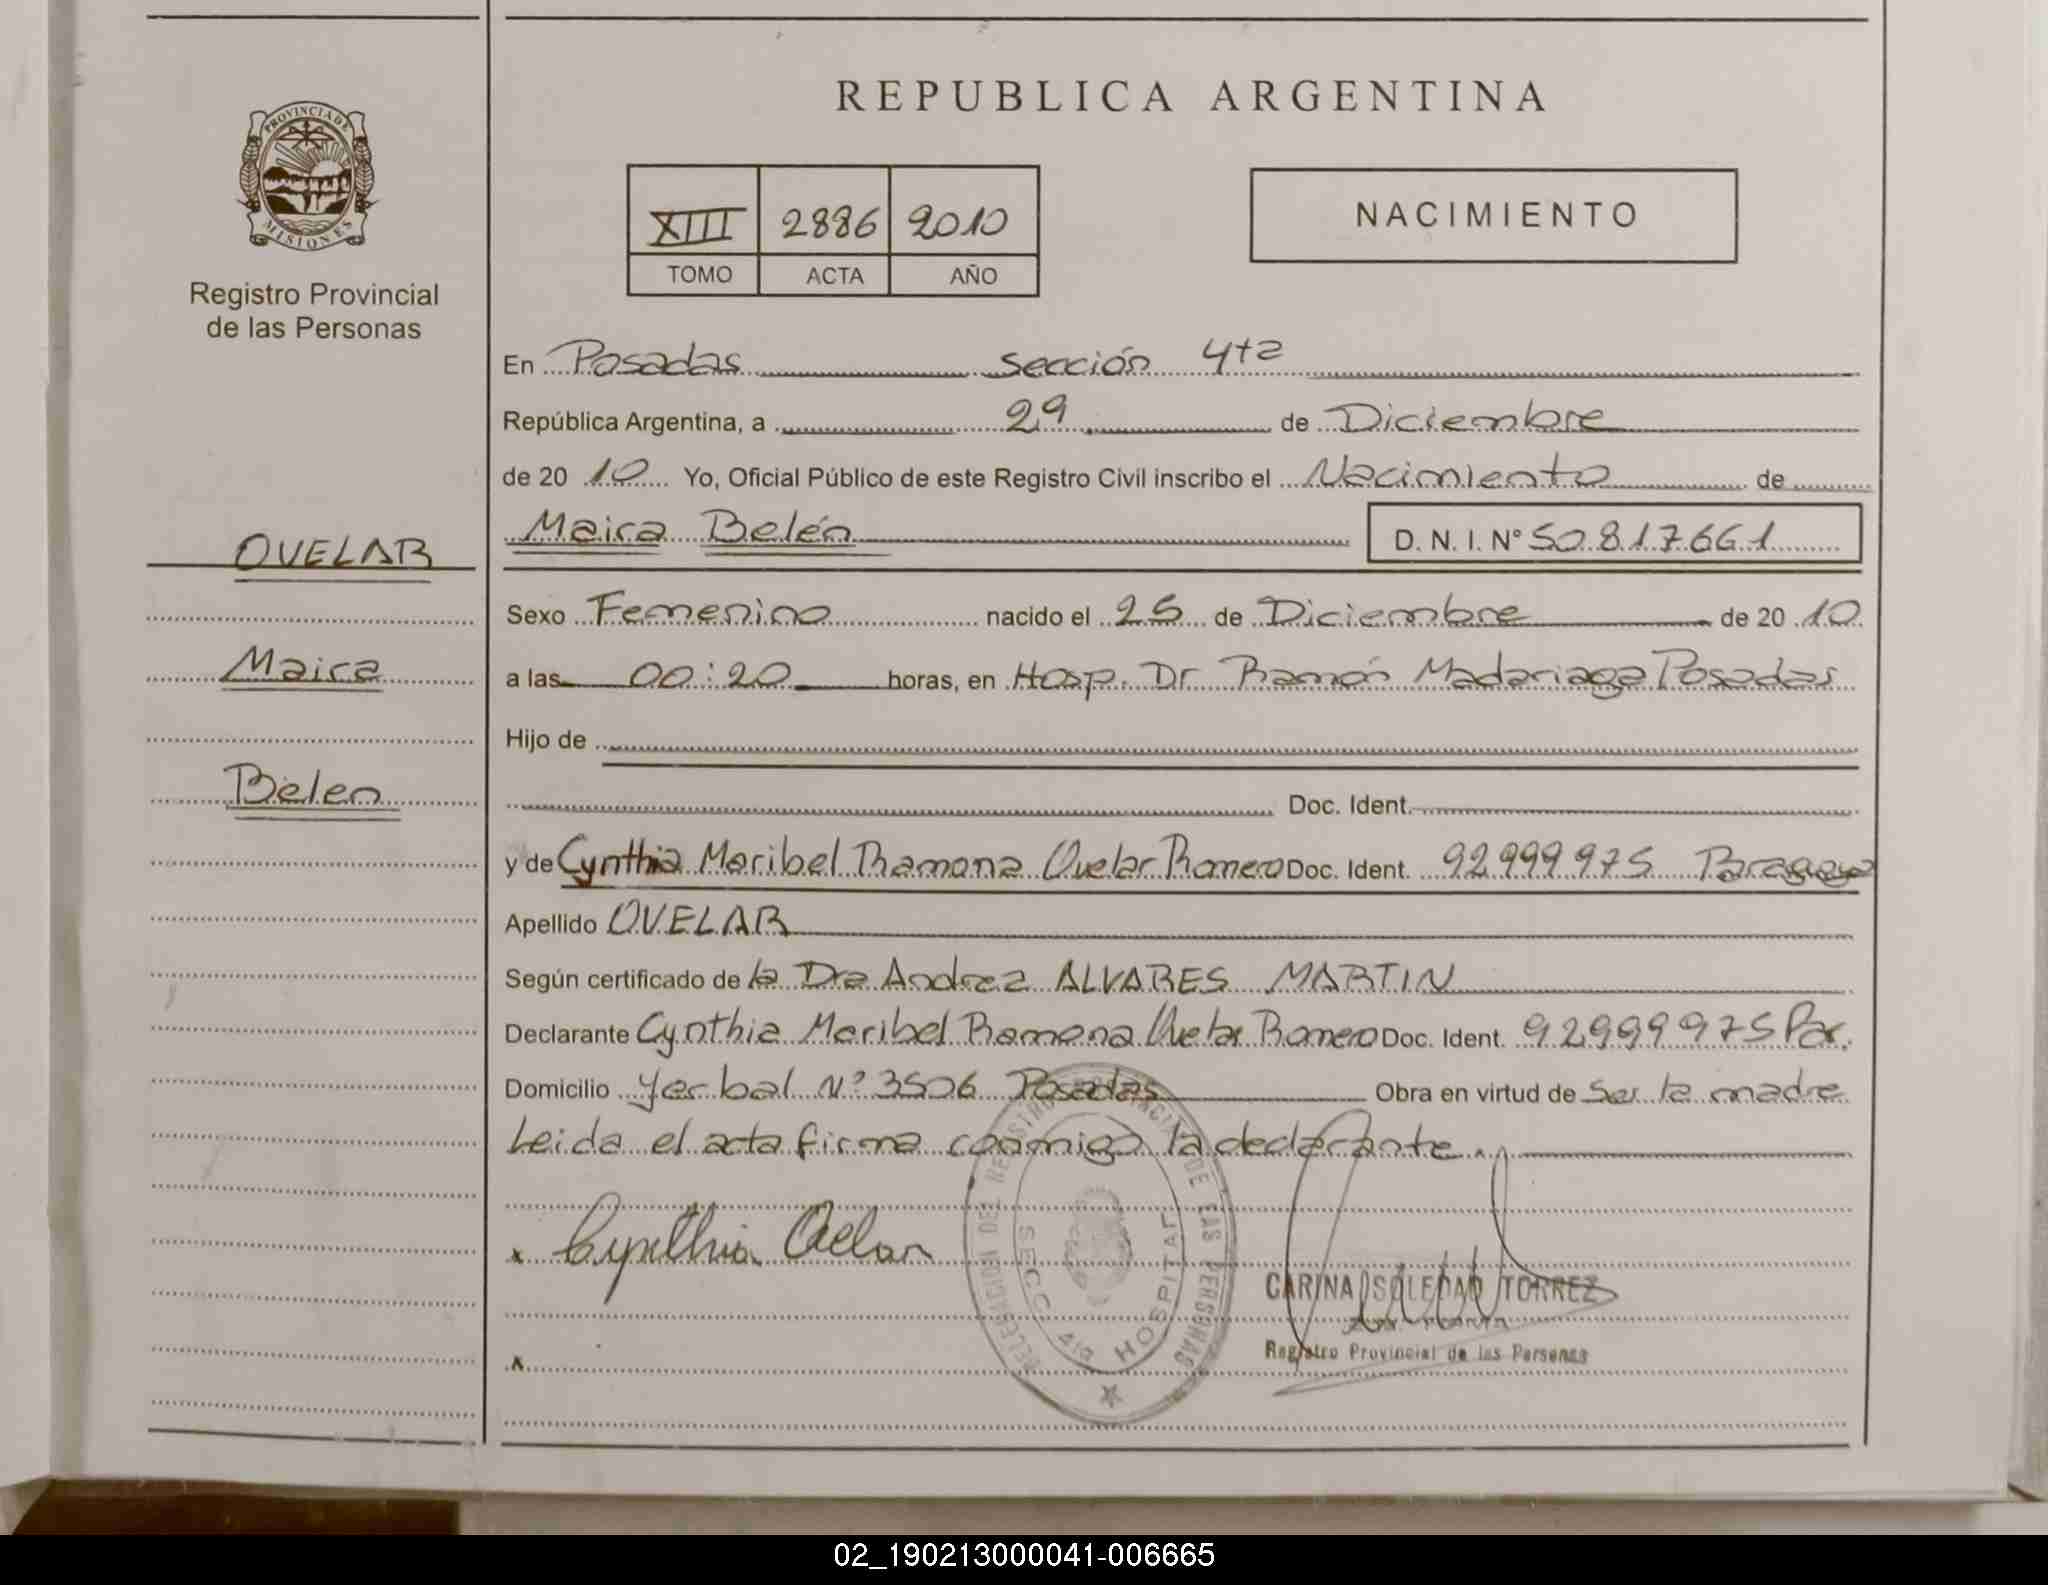 REPUBLICA ARGENTINA
PROVINCIA DE
MISIONES
Registro Provincial
de las Personas
XIII 2886 2010
TOMO ACTA AÑO
NACIMIENTO
En Posadas sección 4ta
República Argentina, a 29 de Diciembre
de 20 10 Yo, Oficial Público de este Registro Civil inscribo el Nacimiento de
Maira Belén D. N. I. N° 50.817.661
OVELAR
Maira
Belen
Sexo Femenino nacido el 25 de Diciembre de 20 10
a las 00:20 horas, en Hosp. Dr Ramón Madariaga Posadas
Hijo de
Doc. Ident.
y de Cynthia Maribel Ramona Ovelar Romero Doc. Ident. 92.999.975 Paraguaya
Apellido OVELAR
Según certificado de la Dra Andrea ALVARES MARTIN
Declarante Cynthia Maribel Ramona Ovelar Romero Doc. Ident. 92999975 Par.
Domicilio Yerbal N° 3506 Posadas Obra en virtud de Ser la madre
Leida el acta firma conmigo la declarante.
x Cynthia Ovelar
x
DELEGACION DEL REGISTRO PROVINCIAL DE LAS PERSONAS
SECC. 4ta HOSPITAL
CARINA SOLEDAD TORREZ
Registro Provincial de las Personas
02_190213000041-006665